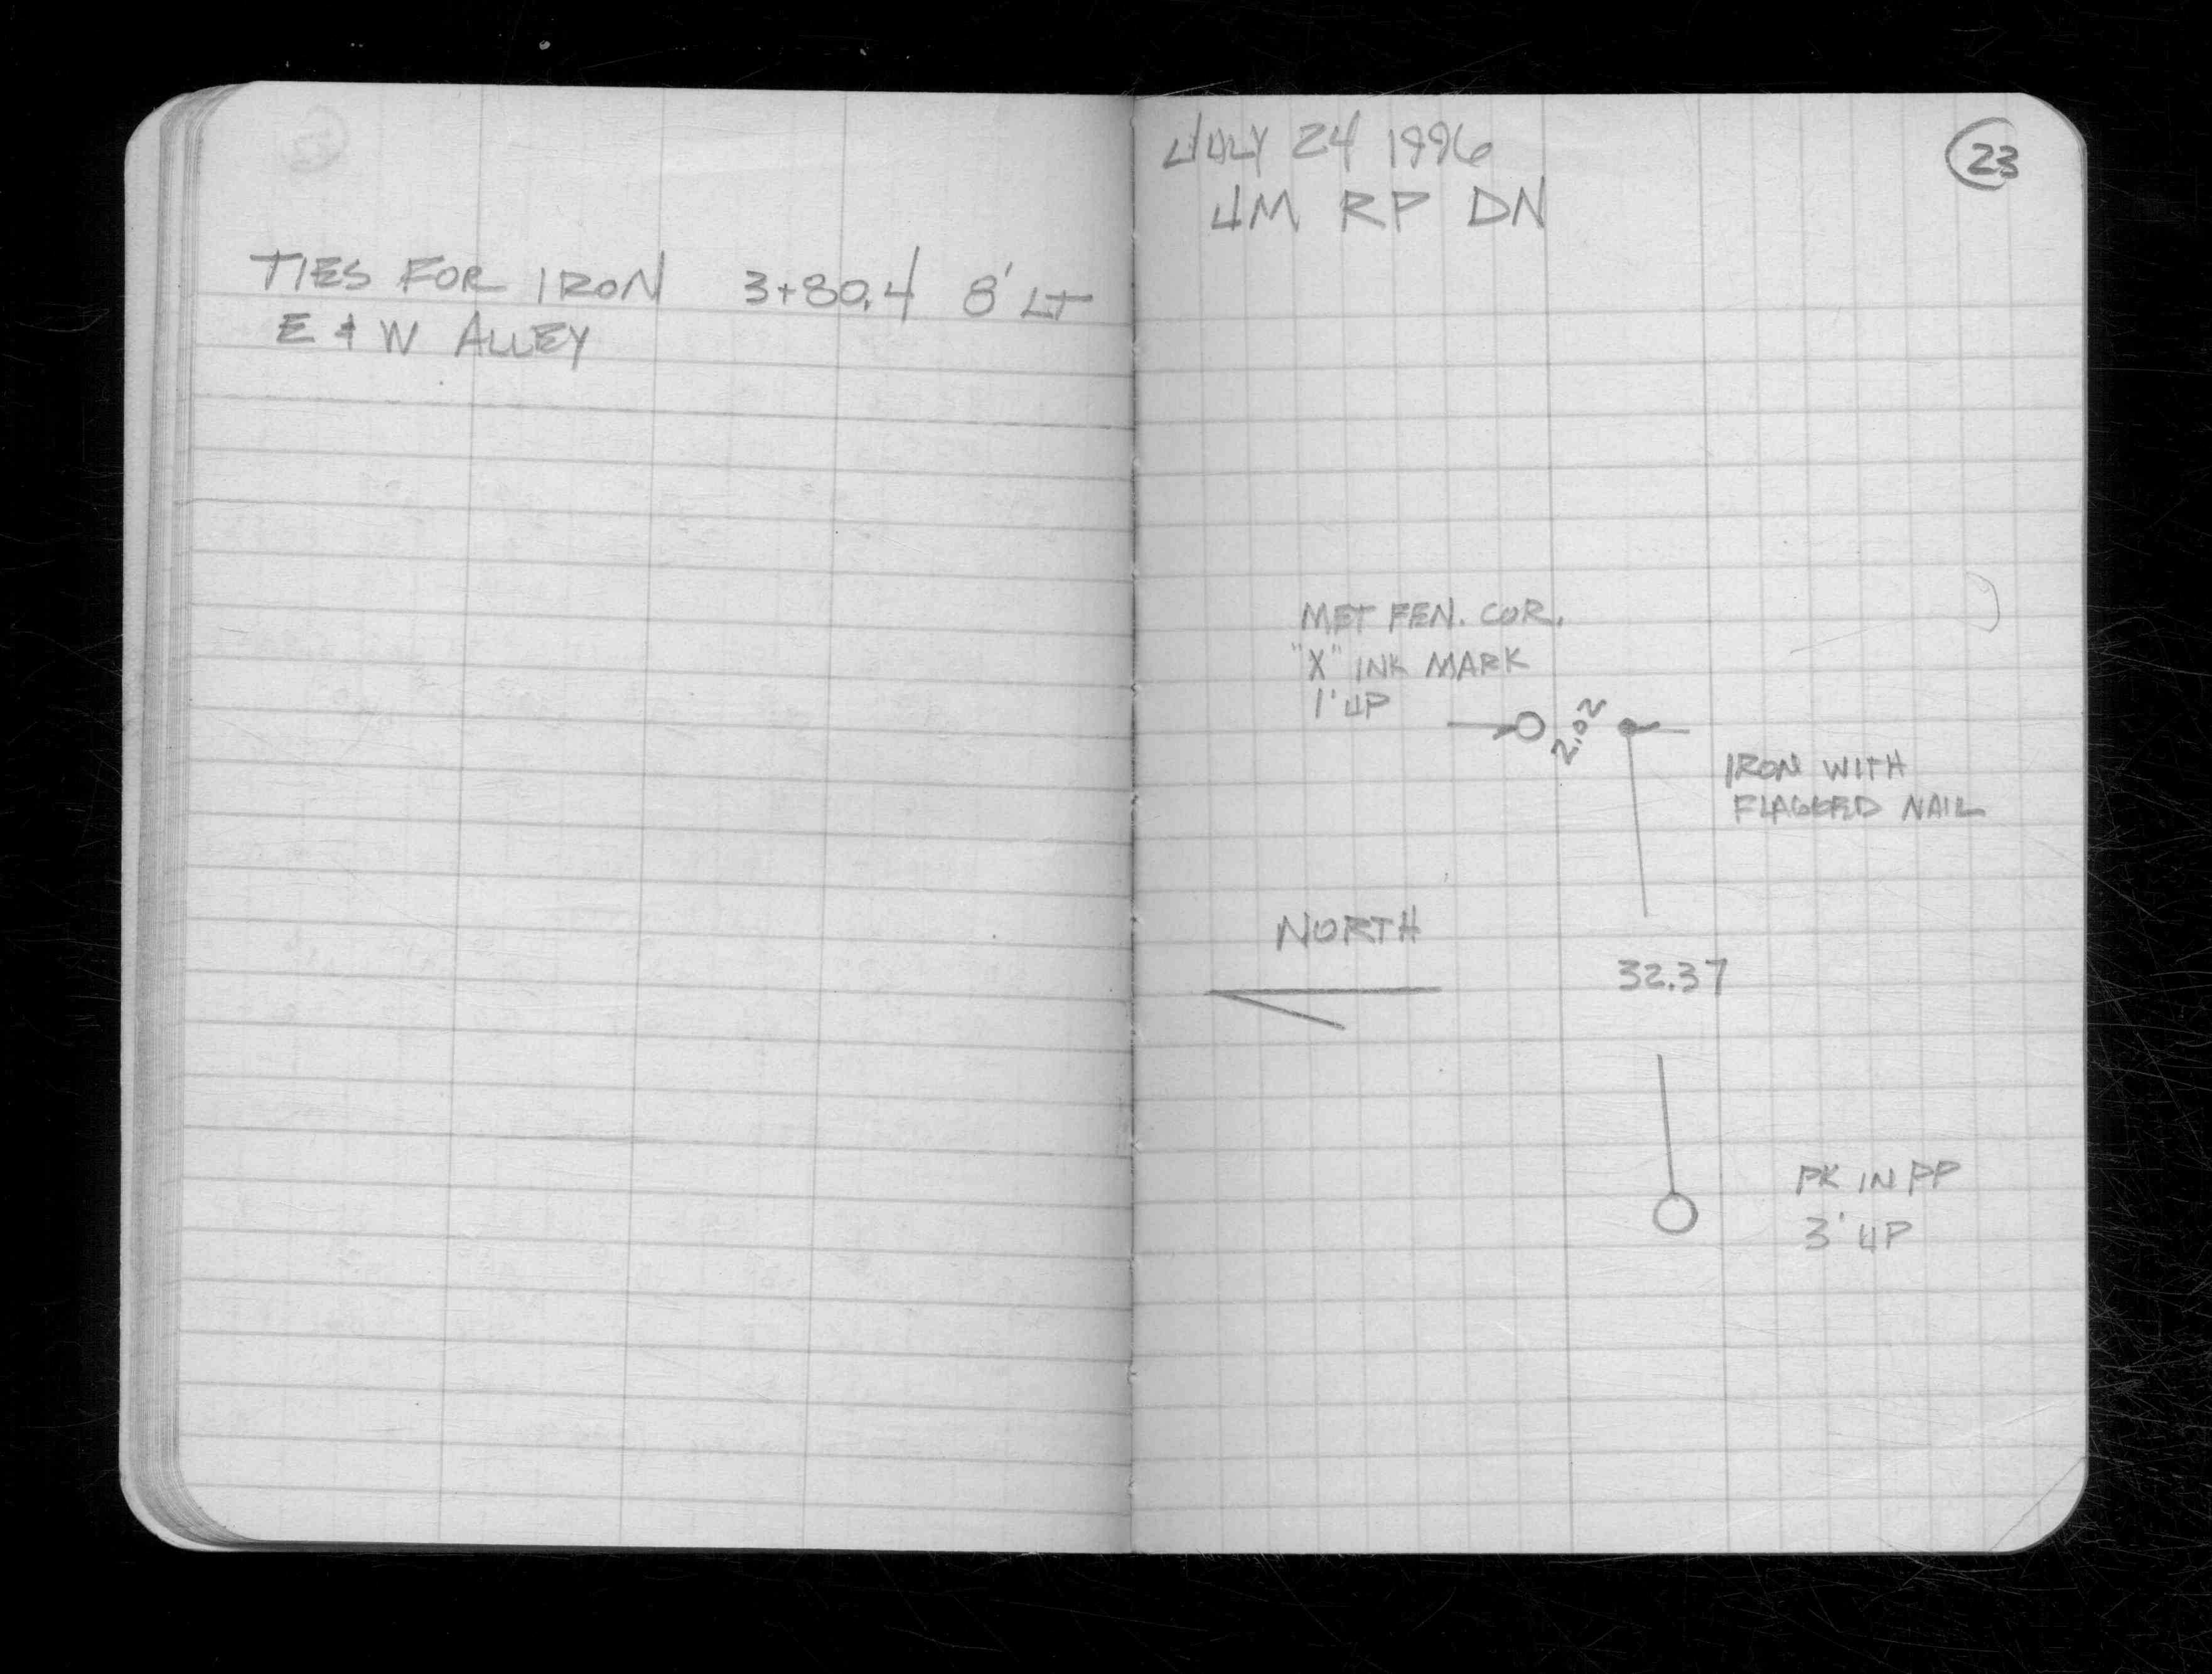 TIES FOR IRON 3+80.4 8' LT
E & W ALLEY
JULY 24 1996
JM RP DN
23
MET FEN. COR.
"X" INK MARK
1' UP
2.02
IRON WITH
FLAGGED NAIL
NORTH
32.37
PK IN PP
3' UP